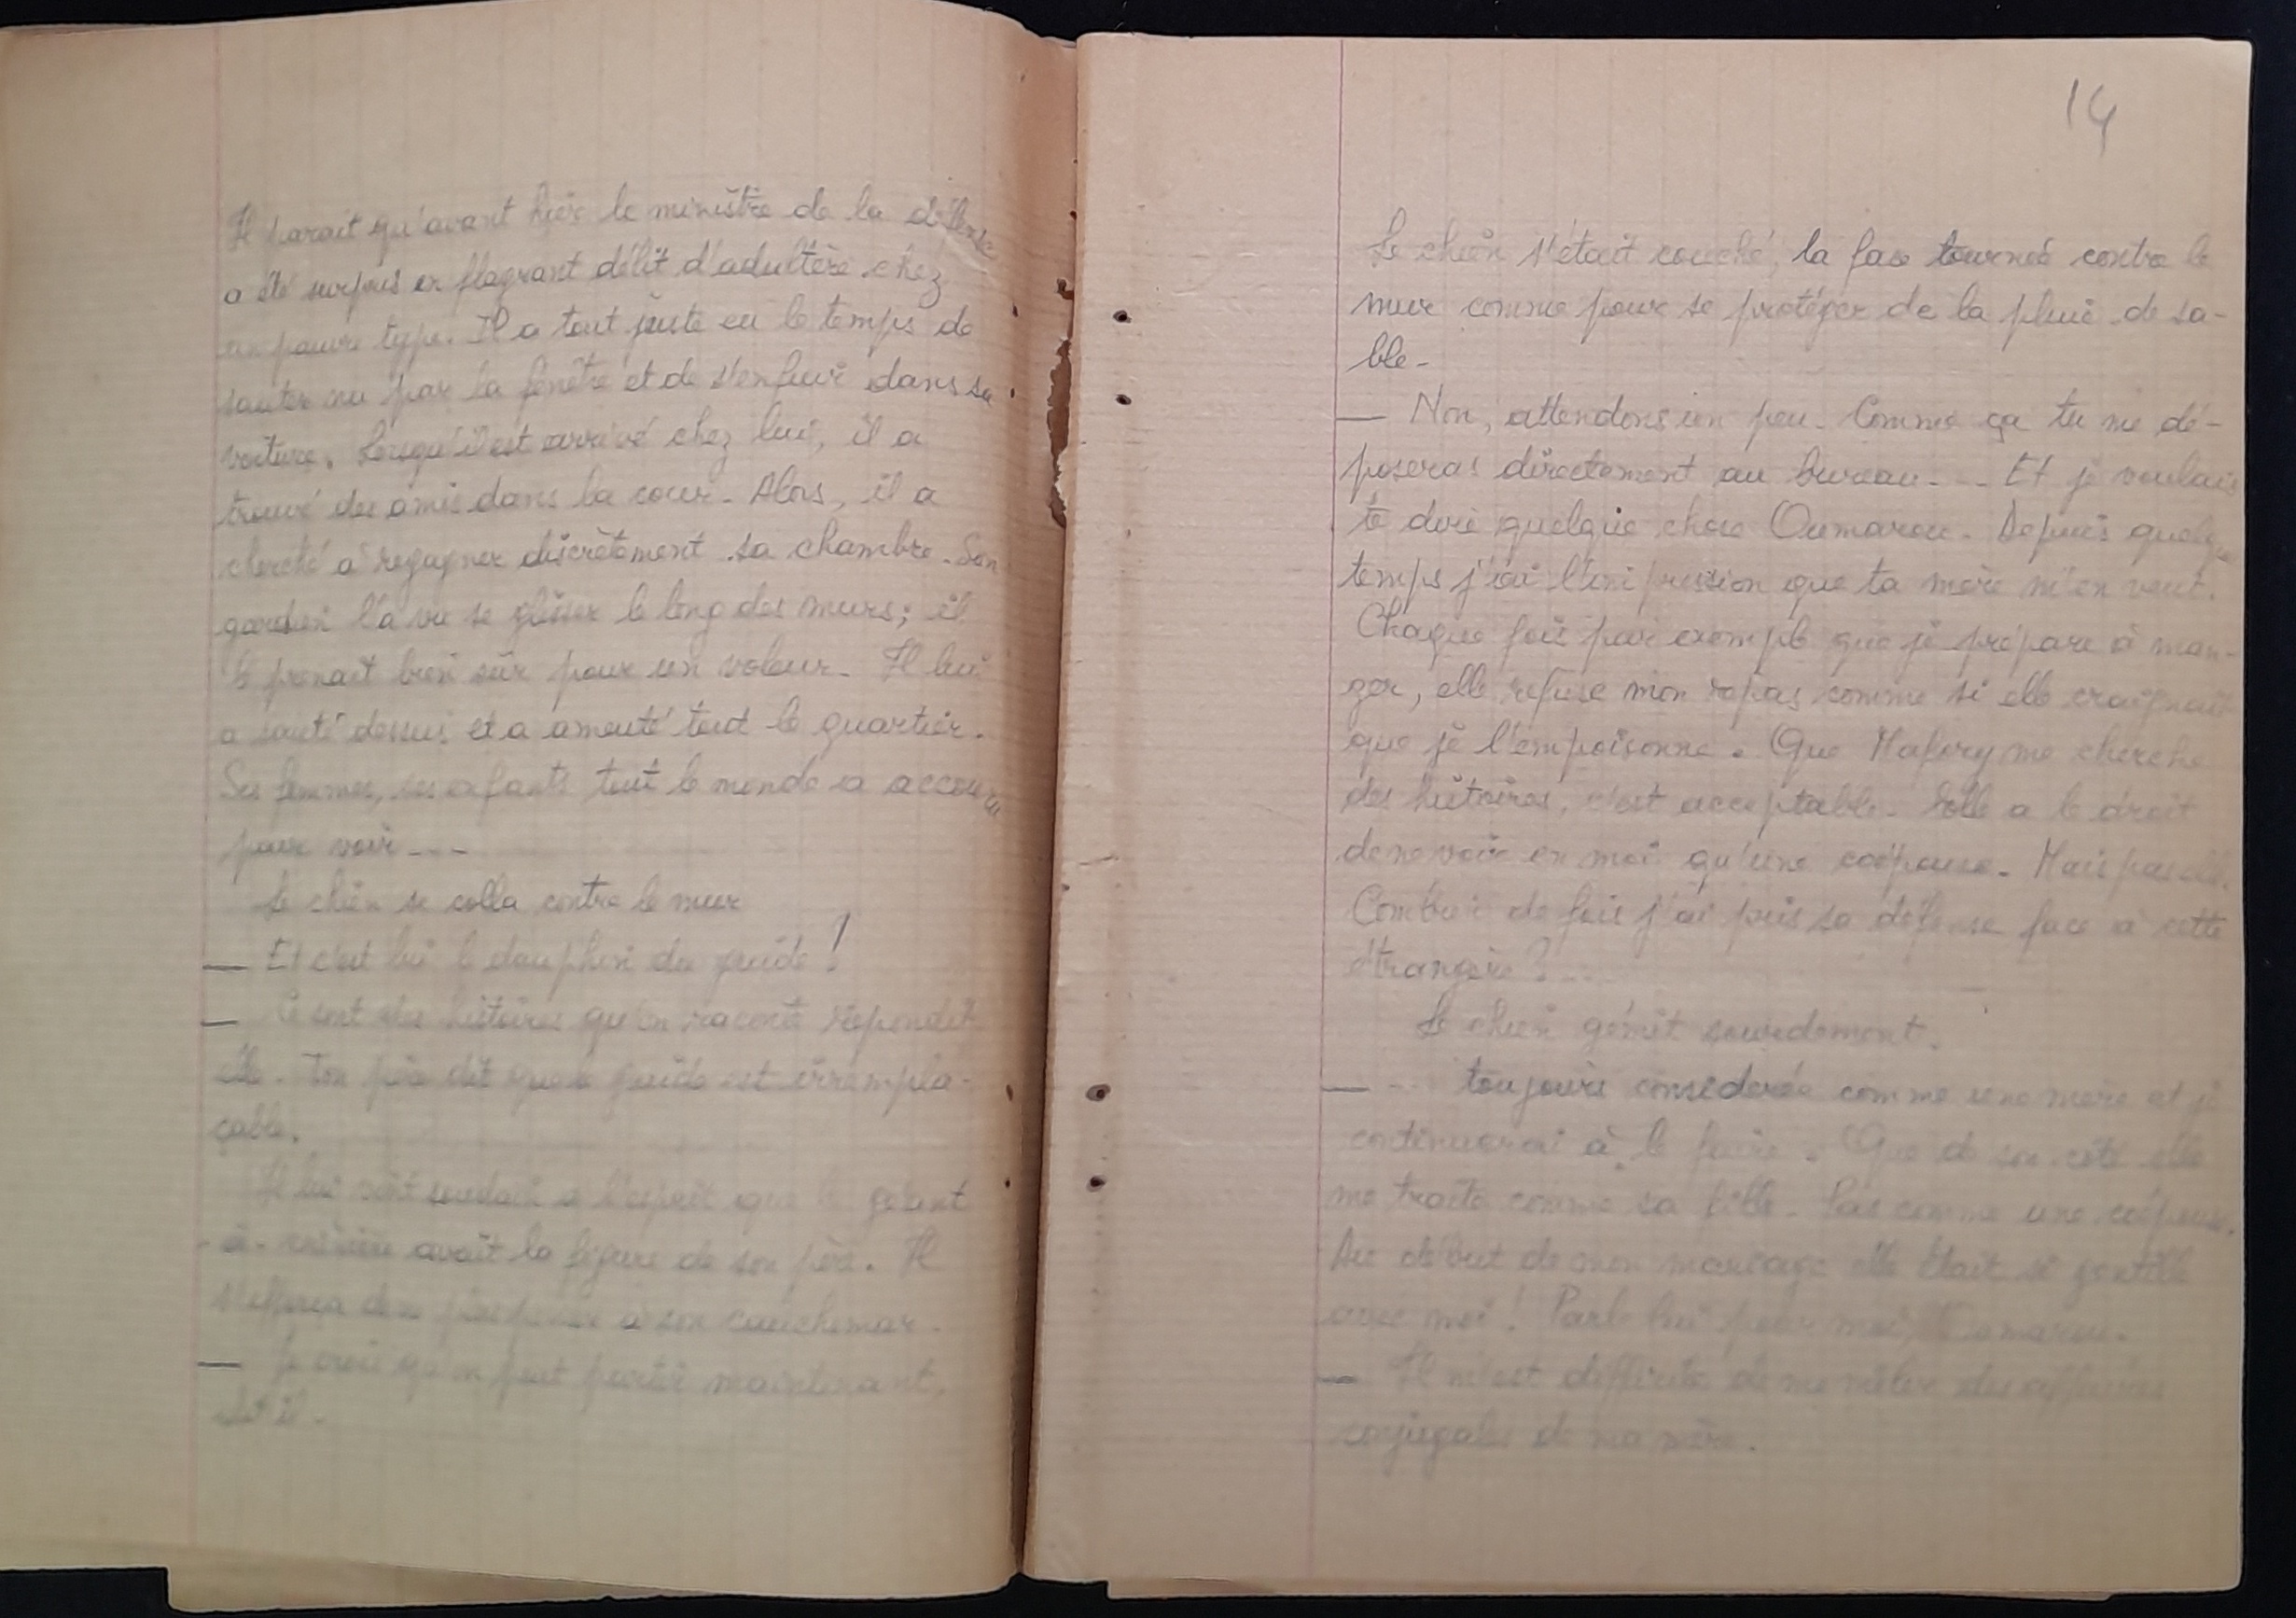 Il parait qu'avant hier le ministre de la défense
a été surpris en flagrant délit d'adultère chez
un pauvre type. Il a tout juste eu le temps de
sauter nu par la fenêtre et de s'enfuir dans sa
voiture. Lorsqu'il est arrivé chez lui, il a
trouvé des amis dans la cour. Alors, il a
cherché à regagner discrètement sa chambre. Son
gardien l'a vu se glisser le long des murs; il
le prenait bien sûr pour un voleur. Il lui
a sauté dessus et a ameuté tout le quartier.
Ses femmes, ses enfants tout le monde a accouru
pour voir ---
Le chien se colla contre le mur
— Et c'est lui le dauphin du guide !
— Ce sont des histoires qu'on raconte répondit
elle. Ton père dit que le guide est irrempla-
çable.
Il lui vint soudain à l'esprit que le géant
-à- crinière avait la figure de son père. Il
s'efforça de ne plus penser à son cauchemar.
— Je crois qu'on peut partir maintenant,
dit il.
14
Le chien s'était couché, la face tournée contre le
mur comme pour se protéger de la pluie de sa-
ble-
— Non, attendons un peu. Comme ça tu me dé-
poseras directement au bureau--- Et je voulais
te dire quelque chose Oumarou. Depuis quelque
temps j'ai l'impression que ta mère m'en veut.
Chaque fois par exemple que je prépare à man-
ger, elle refuse mon repas comme si elle craignait
que je l'empoisonne. Que Hafory me cherche
des histoires, c'est acceptable. Elle a le droit
de ne voir en moi qu'une coépouse. Mais pas elle.
Combien de fois j'ai pris sa défense face à cette
étrangère ? --
Le chien gémit sourdement.
— -- toujours considerée comme une mère et je
continuerai à le faire. Que de son côté elle
me traite comme sa fille. Pas comme une coépouse.
Au début de mon mariage elle était si gentille
avec moi ! Parle lui pour moi, Oumarou.
— Il m'est difficile de me mêler des affaires
conjugales de ma mère.